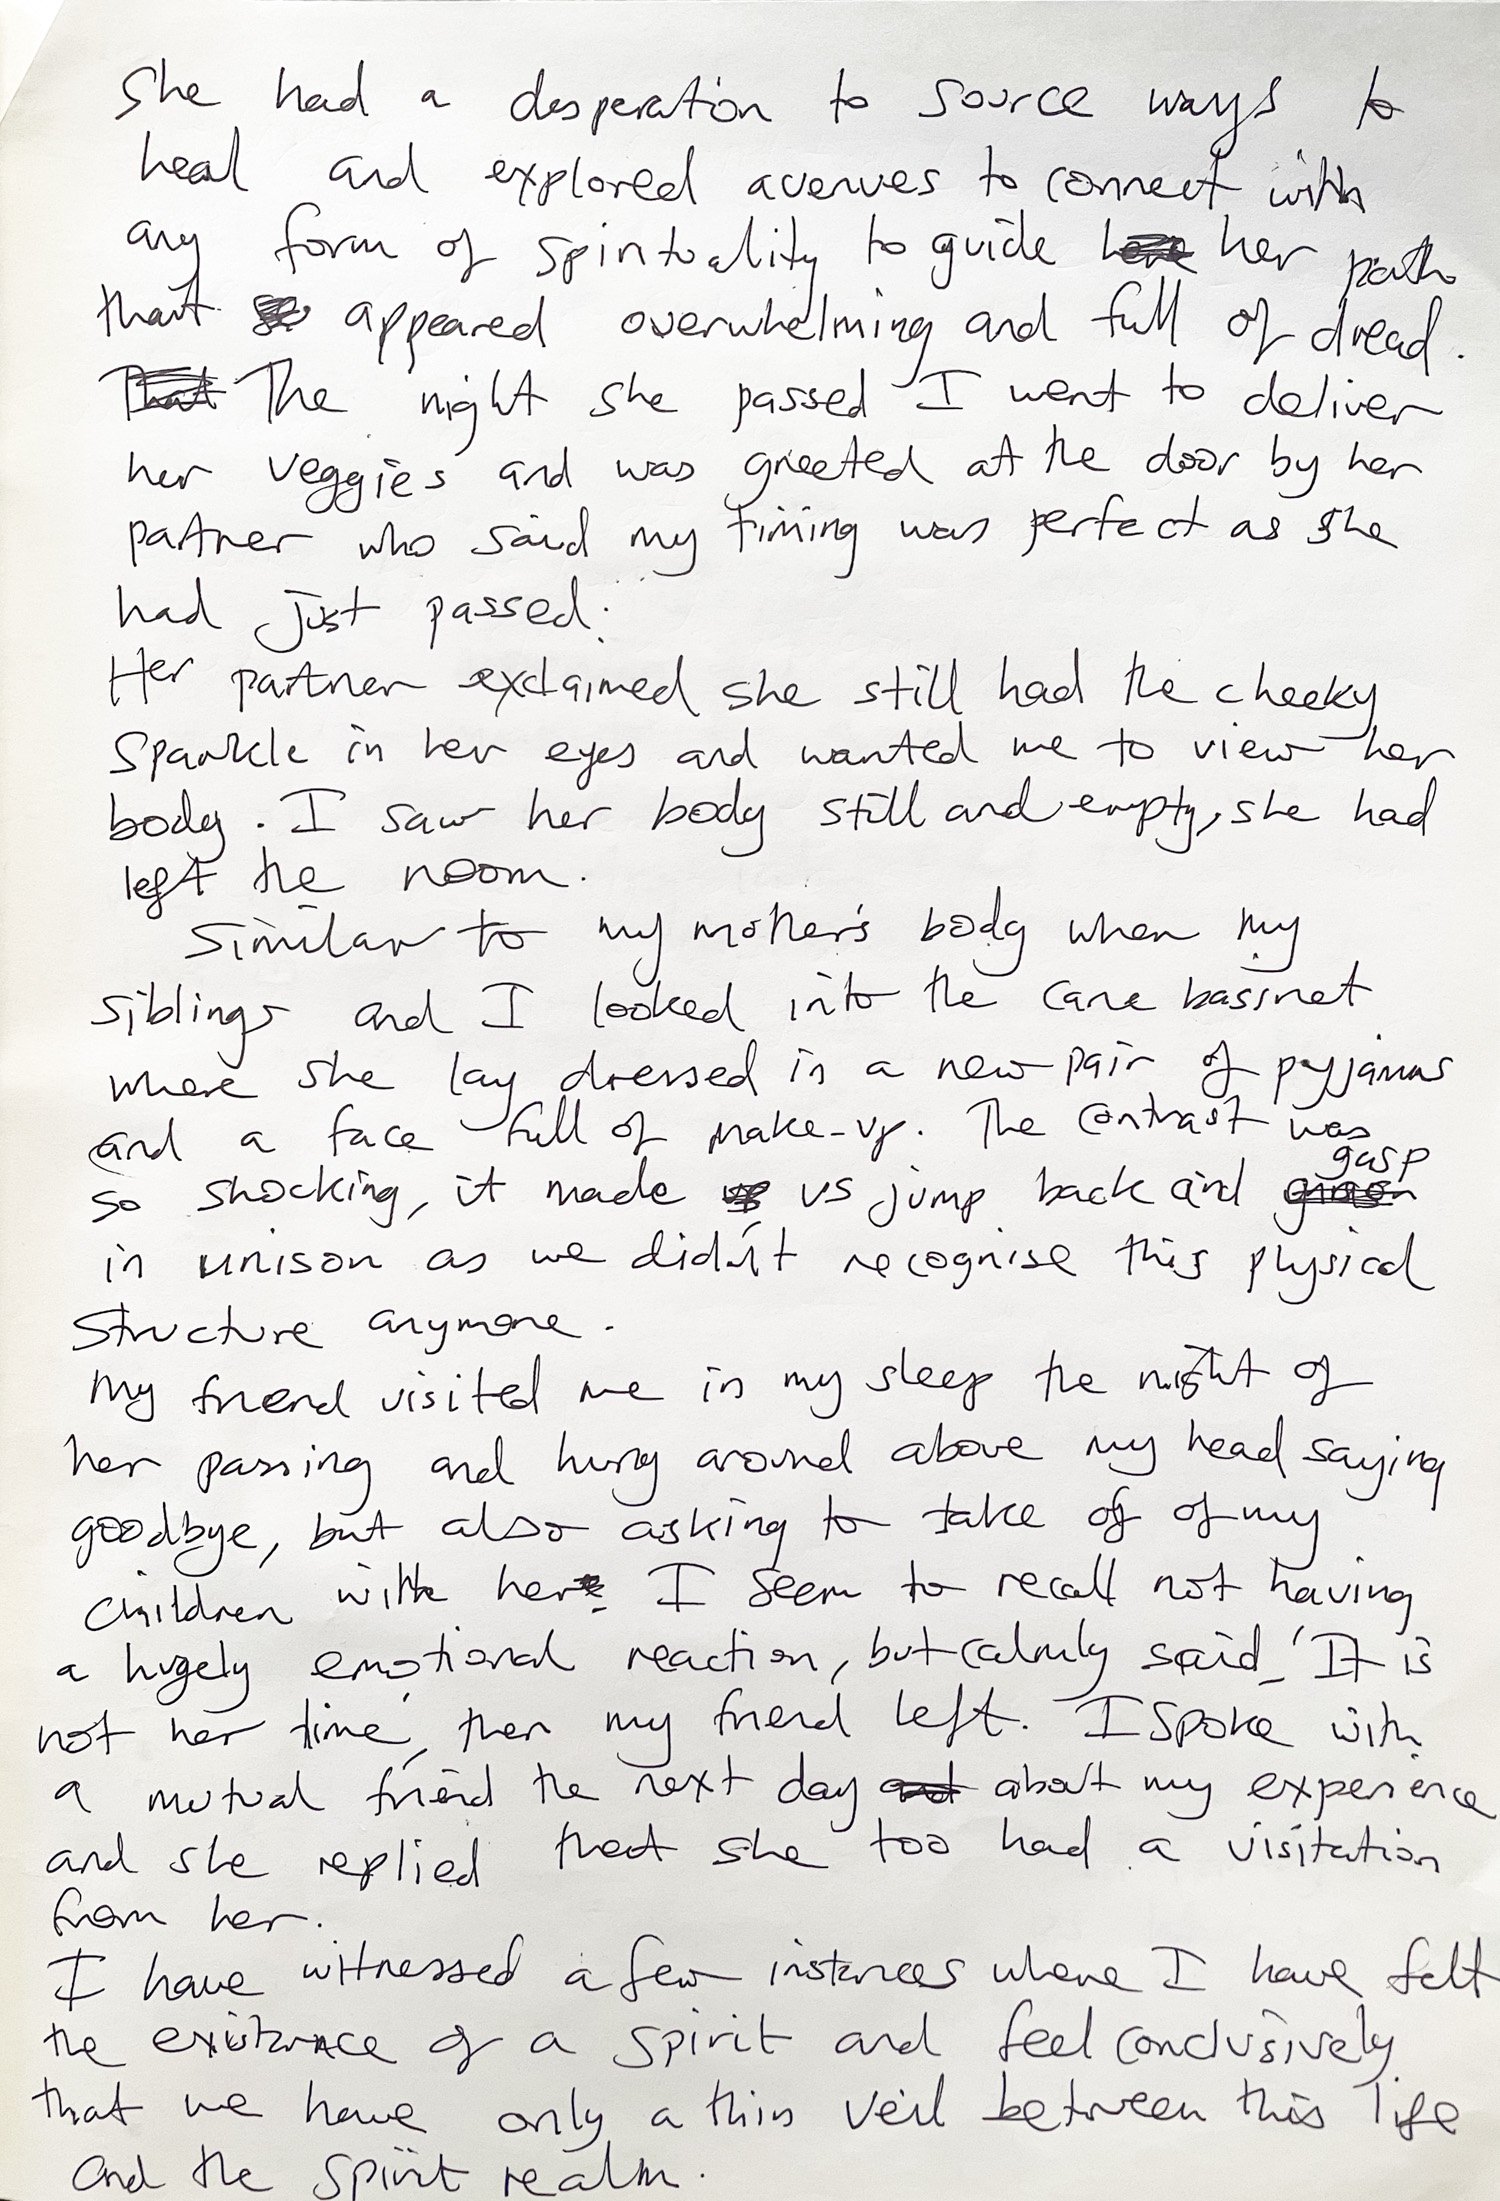 She had a desperation to source ways to
heal and explored avenues to connect with
any form of spirituality to guide her path
that appeared overwhelming and full of dread.
That The night she passed I went to deliver
her veggies and was greeted at the door by her
partner who said my timing was perfect as she
had just passed.
Her partner exclaimed she still had the cheeky
sparkle in her eyes and wanted me to view her
body. I saw her body still and empty, she had
left the room.
Similar to my mother's body when my
siblings and I looked into the cane bassinet
where she lay dressed in a new pair of pyjamas
and a face full of make-up. The contrast was
so shocking, it made us jump back and gasp
in unison as we didn't recognise this physical
structure anymore.
My friend visited me in my sleep the night of
her passing and hung around above my head saying
goodbye, but also asking to take of of my
children with her. I seem to recall not having
a hugely emotional reaction, but calmly said 'It is
not her time', then my friend left. I spoke with
a mutual friend the next day and about my experience
and she replied that she too had a visitation
from her.
I have witnessed a few instances where I have felt
the existence of a spirit and feel conclusively
that we have only a thin veil between this life
and the spirit realm.